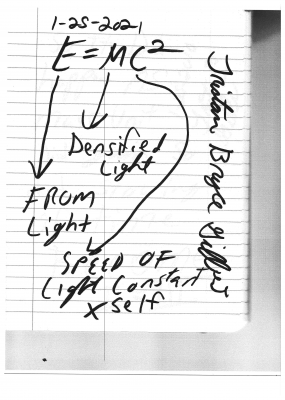 1-25-2021
E=MC²
Densified
Light
FROM
Light
SPEED OF
Light Constant
x self
Tristan Bryce